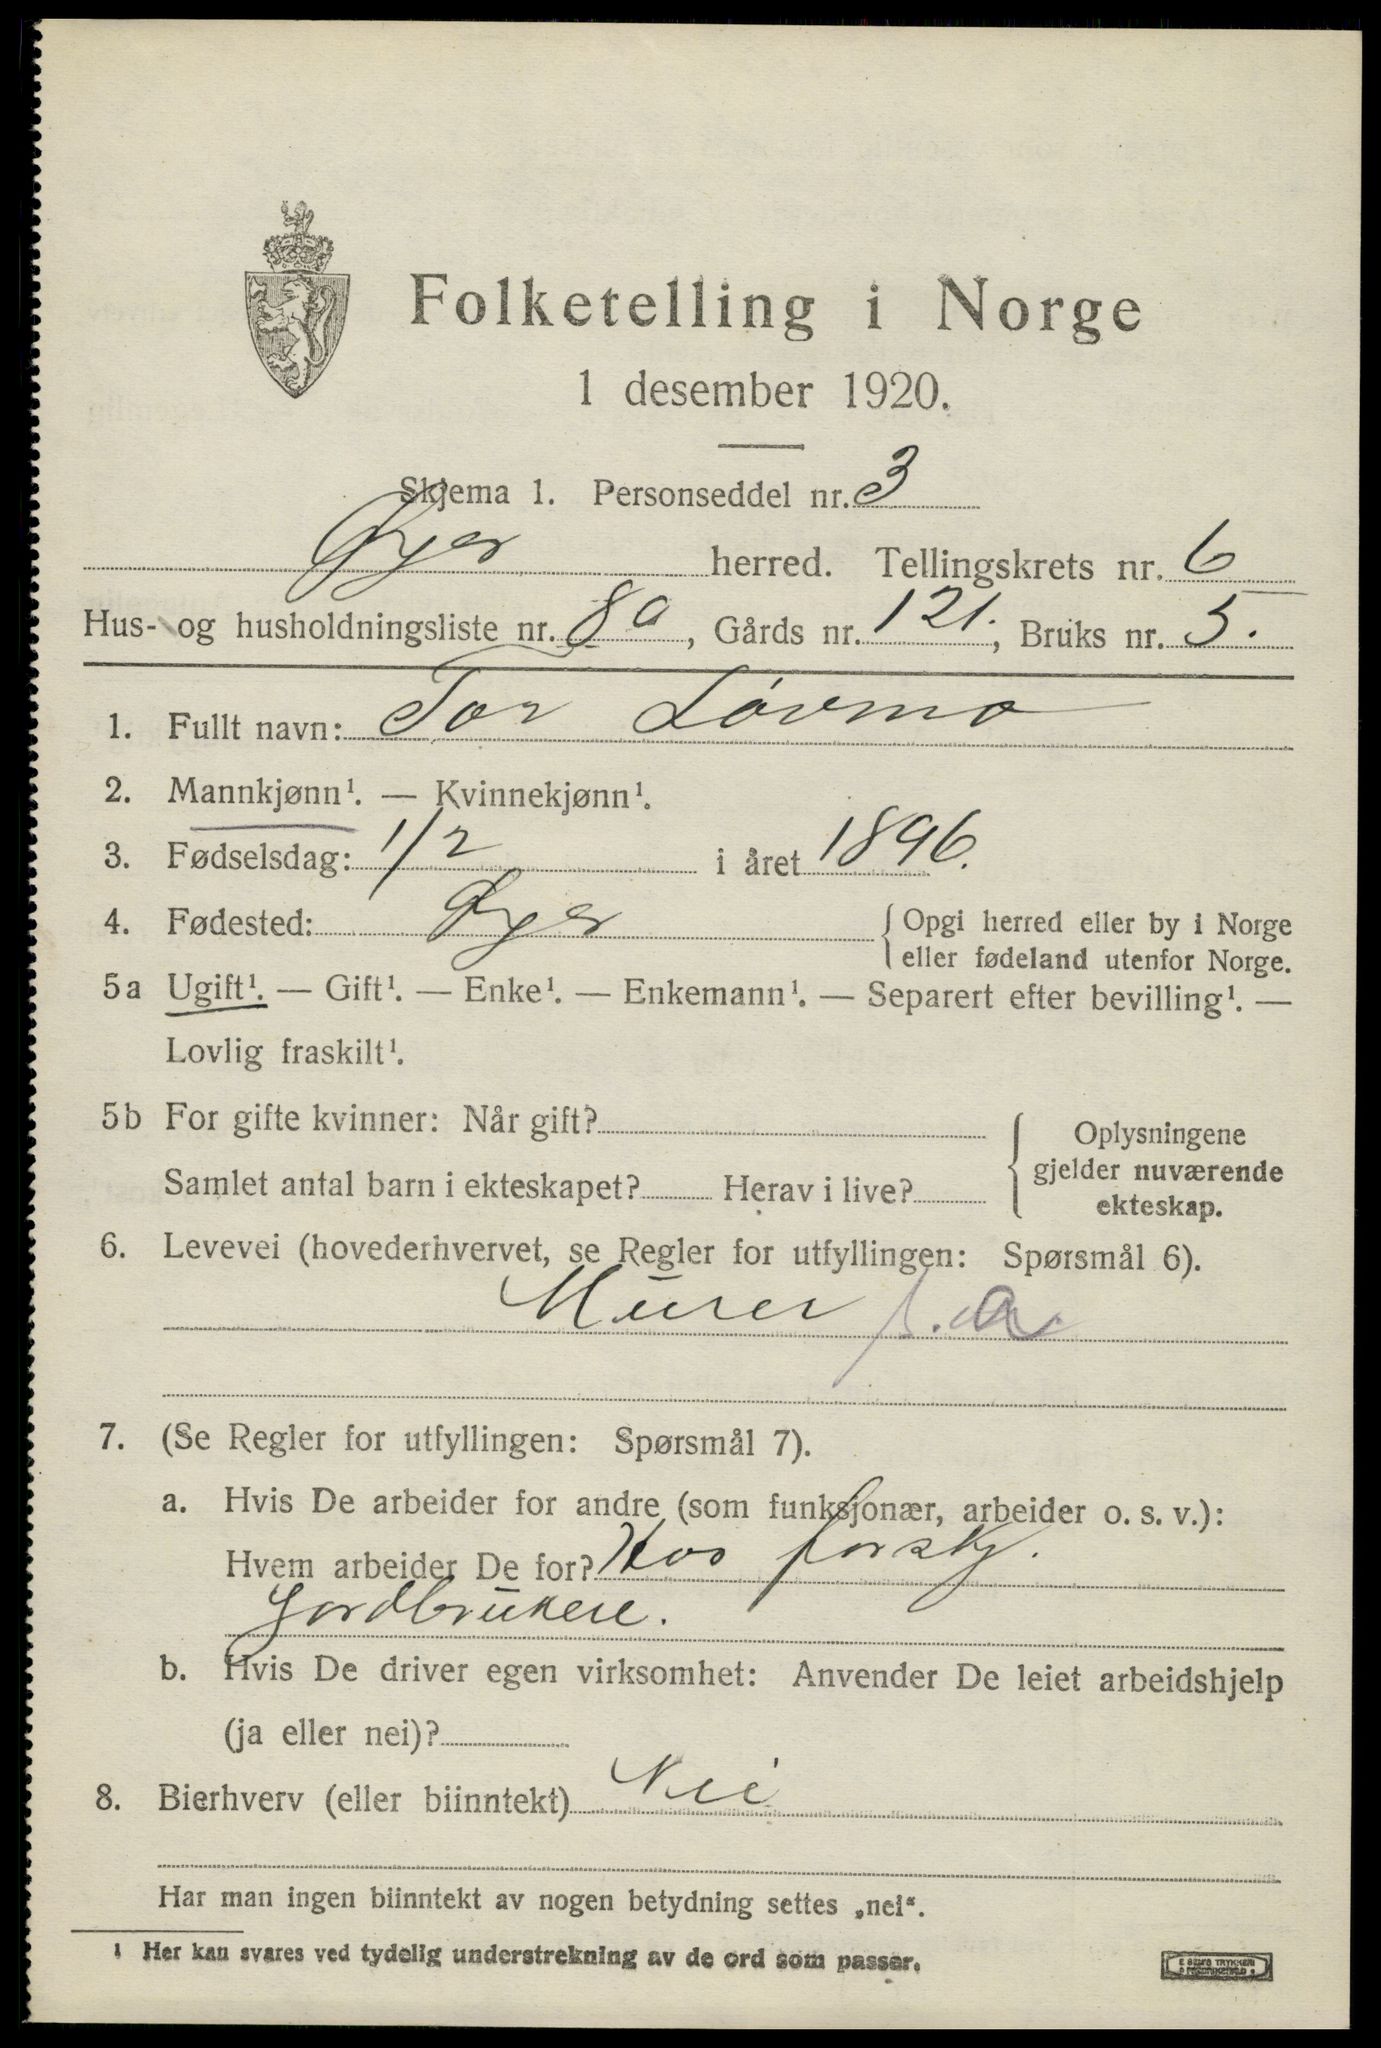 Folketelling i Norge
1 desember 1920.
Skjema 1. Personseddel nr. 3
Øyer herred. Tellingskrets nr. 6
Hus- og husholdningsliste nr. 8a, Gårds nr. 121., Bruks nr. 5.
1. Fullt navn: Tor Løvmo
2. Mannkjønn¹. — Kvinnekjønn¹.
3. Fødselsdag: 1/2 i året 1896.
4. Fødested: Øyer { Opgi herred eller by i Norge
eller fødeland utenfor Norge.
5a Ugift¹. — Gift¹. — Enke¹. — Enkemann¹. — Separert efter bevilling¹. —
Lovlig fraskilt¹.
5b For gifte kvinner: Når gift?
Samlet antal barn i ekteskapet? Herav i live?
{ Oplysningene
gjelder nuværende
ekteskap.
6. Levevei (hovederhvervet, se Regler for utfyllingen: Spørsmål 6).
Murer
7. (Se Regler for utfyllingen: Spørsmål 7).
a. Hvis De arbeider for andre (som funksjonær, arbeider o. s. v.):
Hvem arbeider De for? Hos forskj.
Jordbrukere.
b. Hvis De driver egen virksomhet: Anvender De leiet arbeidshjelp
(ja eller nei)?
8. Bierhverv (eller biinntekt) Nei
Har man ingen biinntekt av nogen betydning settes „nei“.
¹ Her kan svares ved tydelig understrekning av de ord som passer.